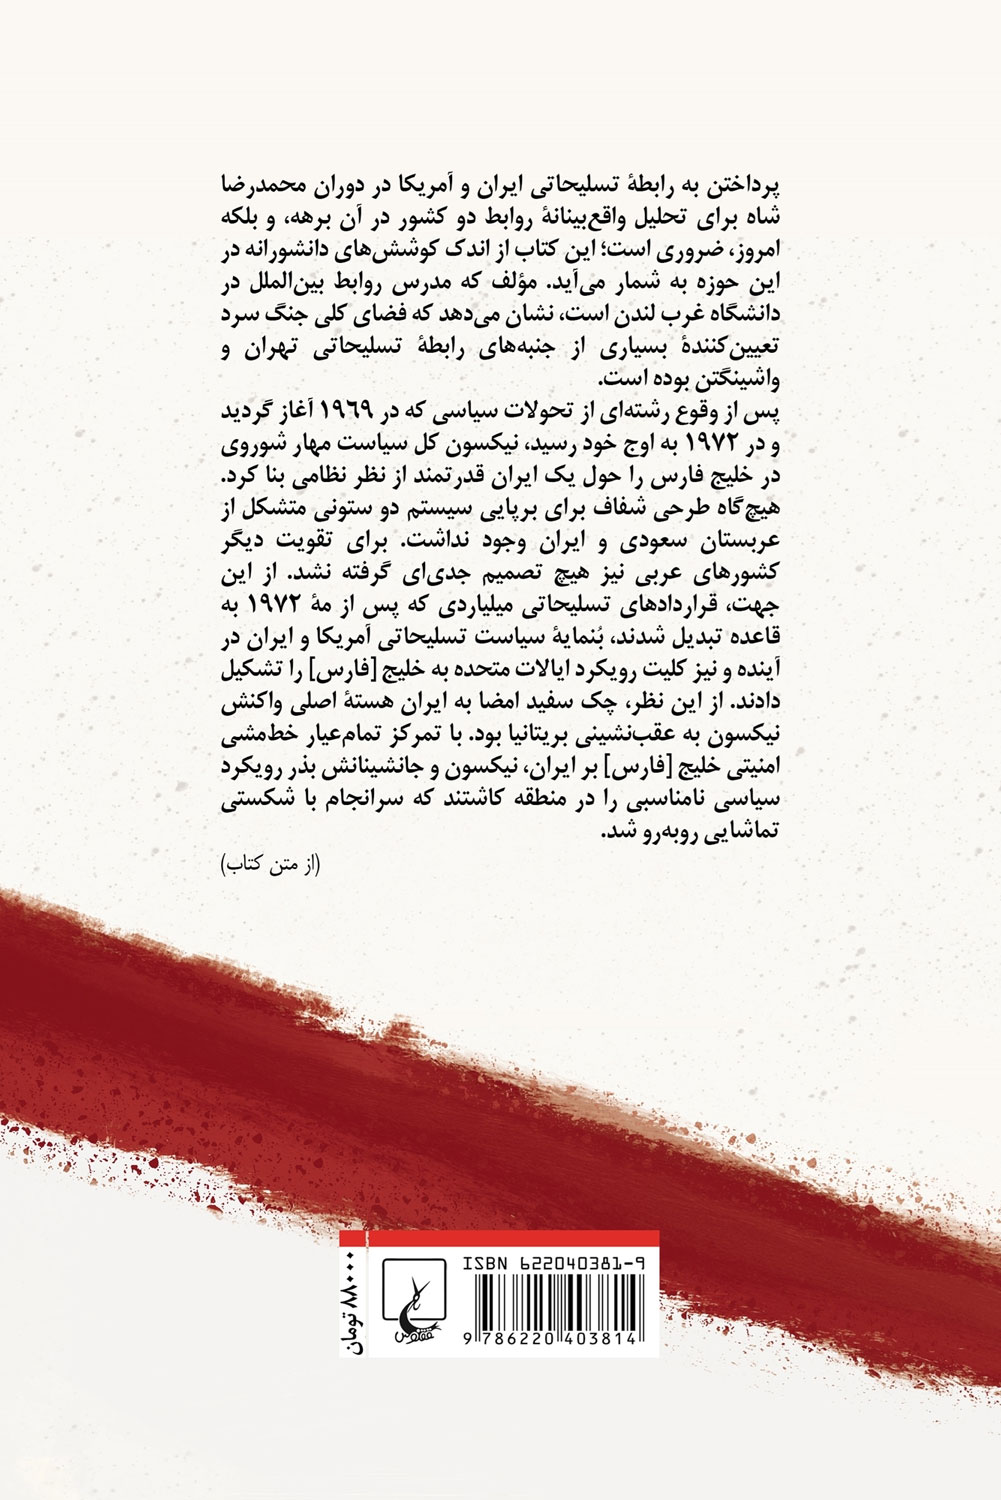 پرداختن به رابطهٔ تسلیحاتی ایران و آمریکا در دوران محمدرضا
شاه برای تحلیل واقع‌بینانهٔ روابط دو کشور در آن برهه، و بلکه
امروز، ضروری است؛ این کتاب از اندک کوشش‌های دانشورانه در
این حوزه به شمار می‌آید. مؤلف که مدرس روابط بین‌الملل در
دانشگاه غرب لندن است، نشان می‌دهد که فضای کلی جنگ سرد
تعیین‌کنندهٔ بسیاری از جنبه‌های رابطهٔ تسلیحاتی تهران و
واشینگتن بوده است.
پس از وقوع رشته‌ای از تحولات سیاسی که در ۱۹۶۹ آغاز گردید
و در ۱۹۷۲ به اوج خود رسید، نیکسون کل سیاست مهار شوروی
در خلیج فارس را حول یک ایران قدرتمند از نظر نظامی بنا کرد.
هیچ‌گاه طرحی شفاف برای برپایی سیستم دو ستونی متشکل از
عربستان سعودی و ایران وجود نداشت. برای تقویت دیگر
کشورهای عربی نیز هیچ تصمیم جدی‌ای گرفته نشد. از این
جهت، قراردادهای تسلیحاتی میلیاردی که پس از مهٔ ۱۹۷۲ به
قاعده تبدیل شدند، بُنمایهٔ سیاست تسلیحاتی آمریکا و ایران در
آینده و نیز کلیت رویکرد ایالات متحده به خلیج [فارس] را تشکیل
دادند. از این نظر، چک سفید امضا به ایران هستهٔ اصلی واکنش
نیکسون به عقب‌نشینی بریتانیا بود. با تمرکز تمام‌عیار خط‌مشی
امنیتی خلیج [فارس] بر ایران، نیکسون و جانشینانش بذر رویکرد
سیاسی نامناسبی را در منطقه کاشتند که سرانجام با شکستی
تماشایی روبه‌رو شد.
(از متن کتاب)
۸۸۰۰۰ تومان
ققنوس
ISBN 622040381-9
9 786220 403814